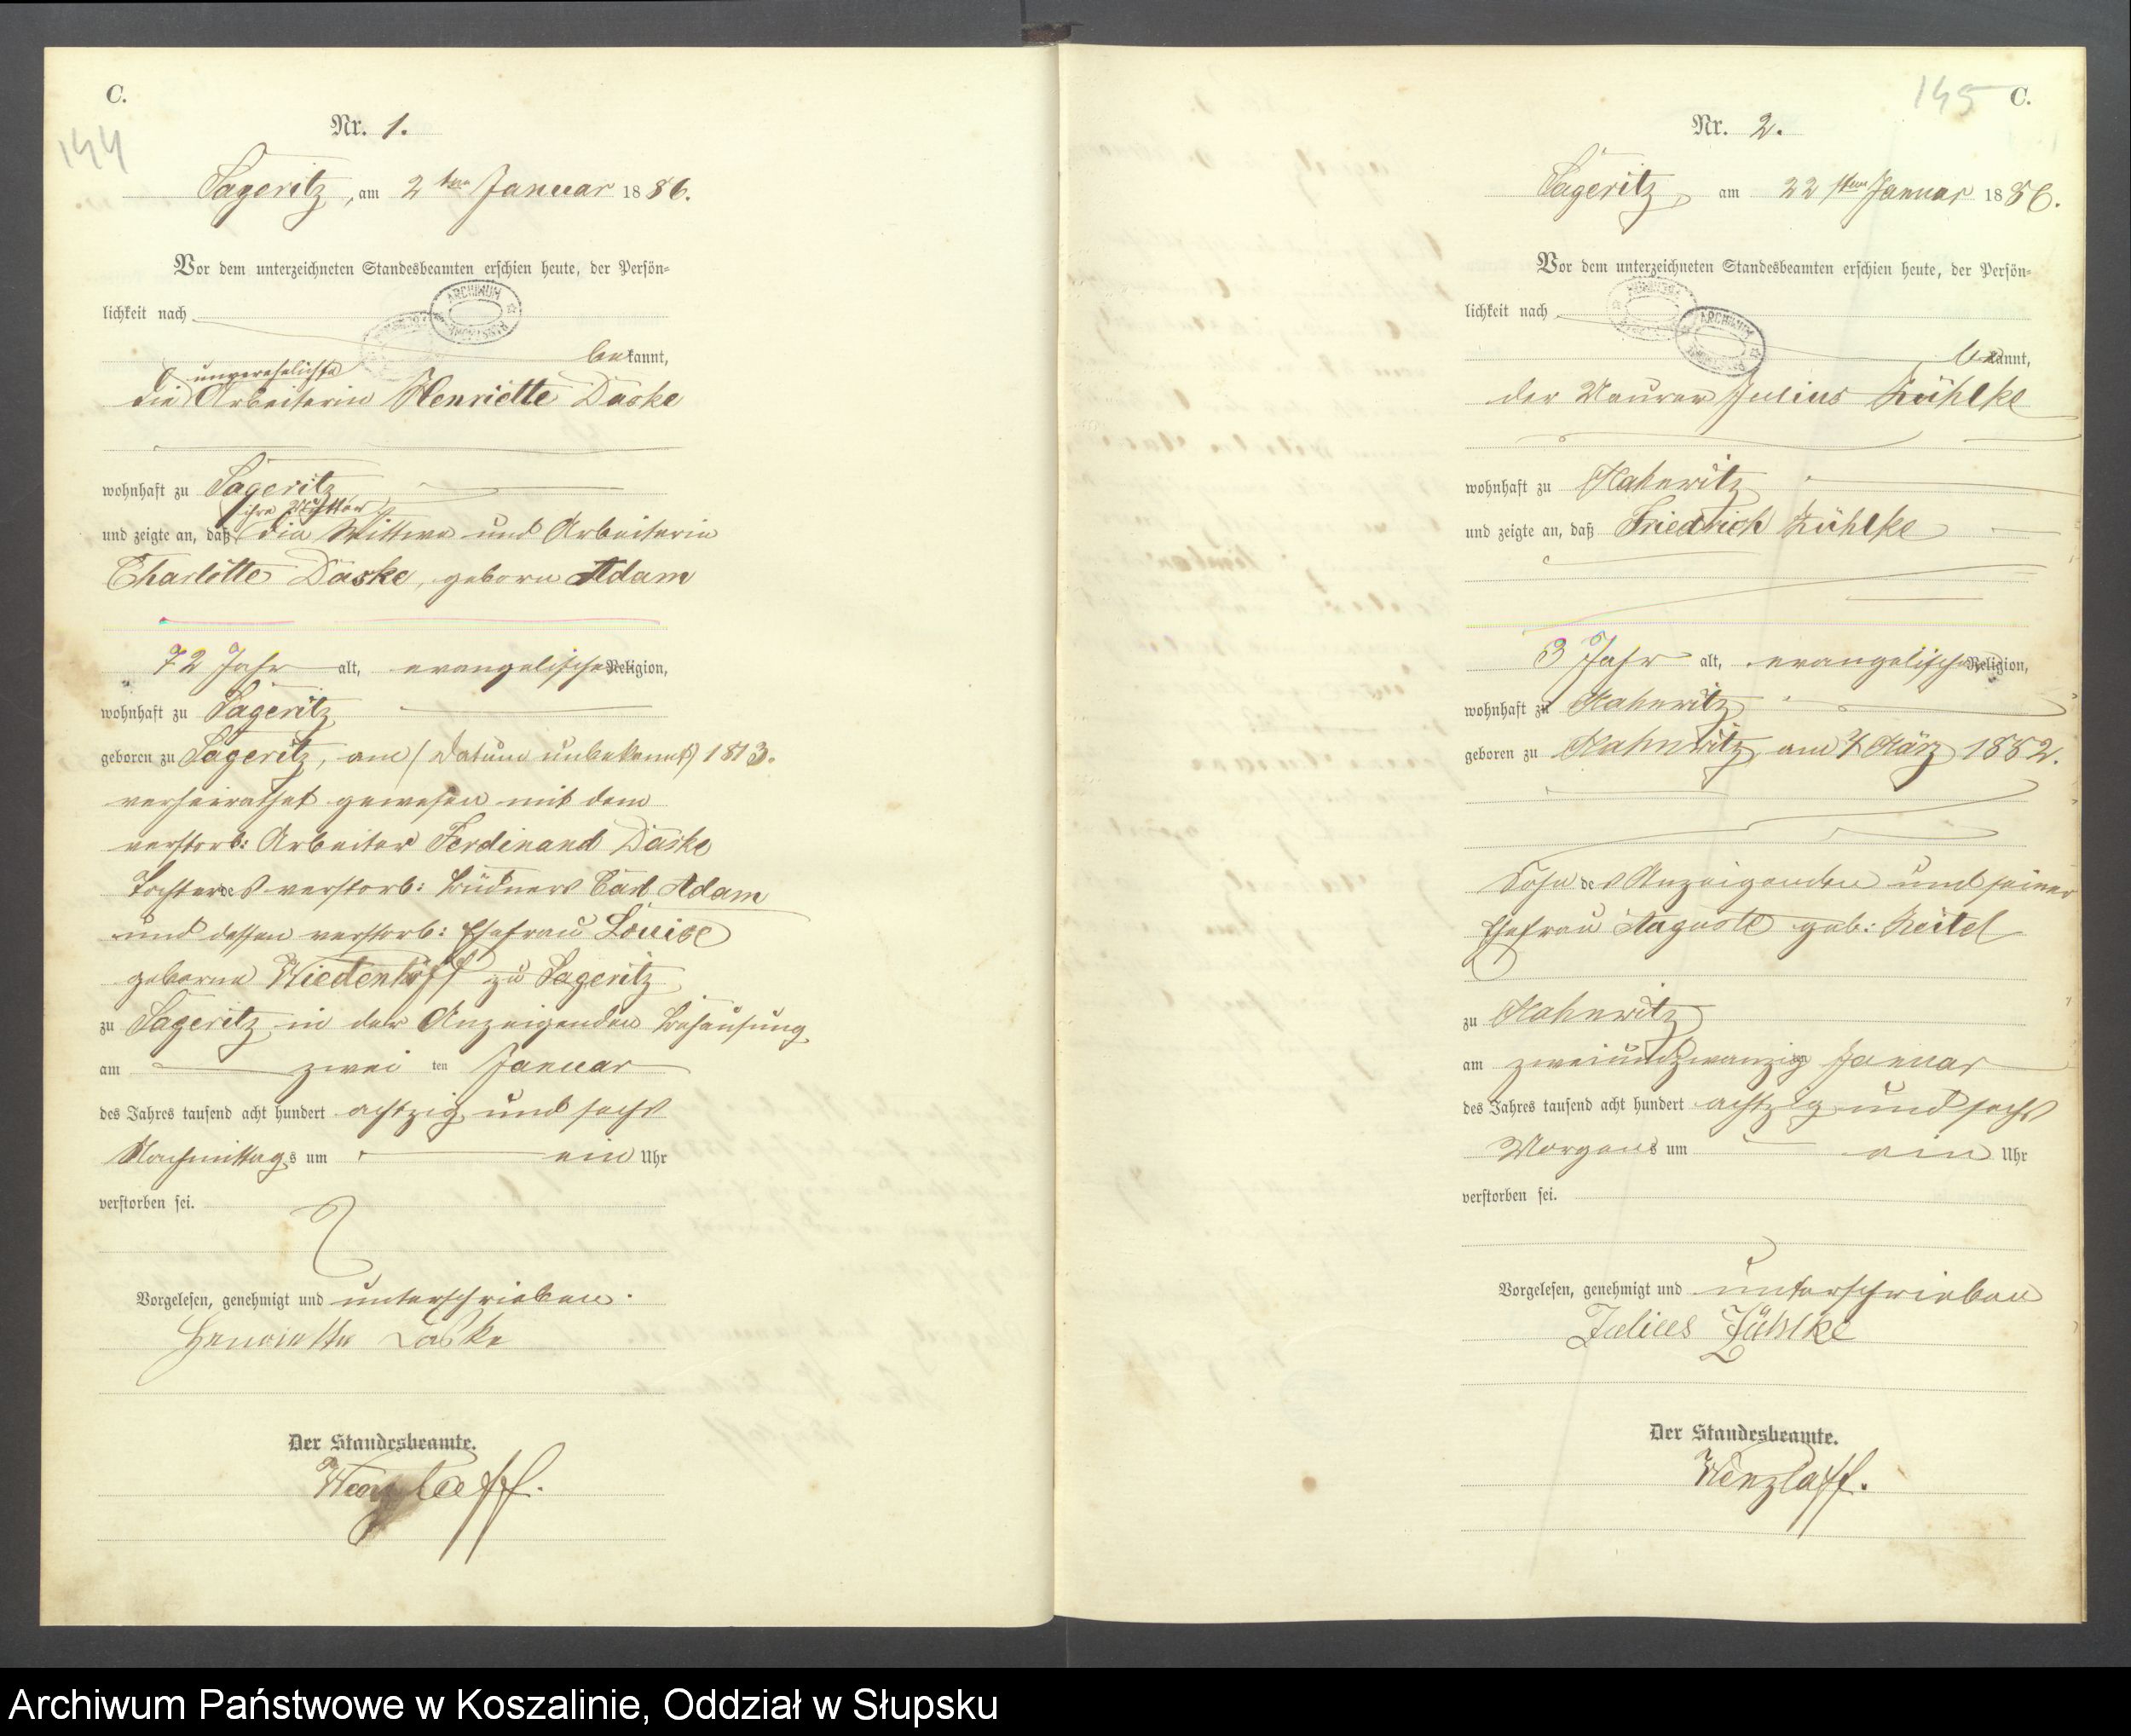 C.
144
Nr. 1.
Sageritz, am 2ten Januar 1886.
Vor dem unterzeichneten Standesbeamten erschien heute, der Persön=
lichkeit nach
bekannt,
unverehelichte
die Arbeiterin Henriette Daske
wohnhaft zu Sageritz
ihre Mutter
und zeigte an, daß die Wittwe und Arbeiterin
Charlotte Daske, geborn Adam
72 Jahr alt, evangelischer Religion,
wohnhaft zu Sageritz
geboren zu Sageritz, am (Datum unbekannt) 1813.
verheirathet gewesen mit dem
verstorb: Arbeiter Ferdinand Daske
Tochter des verstorb: Büdners Carl Adam
und dessen verstorb: Ehefrau Louise
geborne Wiedenhöft zu Sageritz
zu Sageritz in der Anzeigenden Behausung
am zwei ten Januar
des Jahres tausend acht hundert achtzig und sechs
Nachmittags um ein Uhr
verstorben sei.
Vorgelesen, genehmigt und unterschrieben.
Henriette Daske
Der Standesbeamte.
Wenzlaff.
145
C.
Nr. 2.
Sageritz, am 22sten Januar 1886.
Vor dem unterzeichneten Standesbeamten erschien heute, der Persön=
lichkeit nach
bekannt,
der Maurer Julius Zühlke
wohnhaft zu Hahnwitz
und zeigte an, daß Friedrich Zühlke
3 Jahr alt, evangelischer Religion,
wohnhaft zu Hahnwitz
geboren zu Hahnwitz am 7 März 1882.
Sohn des Anzeigenden und seiner
Ehefrau Auguste geb: Reitel
zu Hahnwitz
am zweiundzwanzigsten Januar
des Jahres tausend acht hundert achtzig und sechs
Morgens um ein Uhr
verstorben sei.
Vorgelesen, genehmigt und unterschrieben
Julius Zühlke
Der Standesbeamte.
Wenzlaff.
Archiwum Państwowe w Koszalinie, Oddział w Słupsku